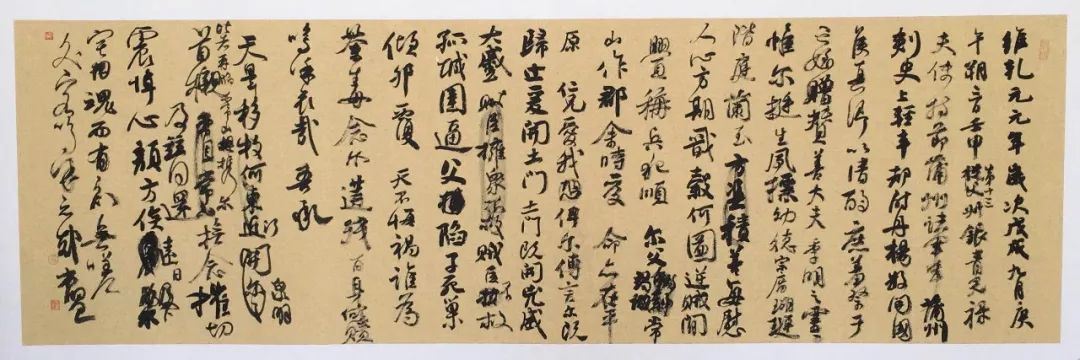 維乾元元年歲次戊戌九月庚
午朔三日壬申第十三從父銀青光祿
夫使持節蒲州諸軍事蒲州
刺史上輕車都尉丹楊縣開國
侯真卿以清酌庶羞祭于
亡姪贈贊善大夫季明之靈
惟爾挺生夙標幼德宗廟瑚璉
階庭蘭玉方憑積善每慰
人心方期戩穀何圖逆賊閒
釁稱兵犯順爾父竭誠常
山作郡余時受命亦在平
原仁兄愛我恐俾爾傳言爾既
歸止爰開土門土門既開兇威
大蹙賊臣擁眾不救賊臣不救
孤城圍逼父陷子死巢
傾卵覆天不悔禍誰為
荼毒念爾遘殘百身何贖
嗚呼哀哉吾承
天澤移牧河東近泉明
比者再陷常山攜爾
首櫬及茲同還撫念摧切
震悼心顏方俟遠日
宅魂而有知無嗟
久客嗚呼哀哉尚饗